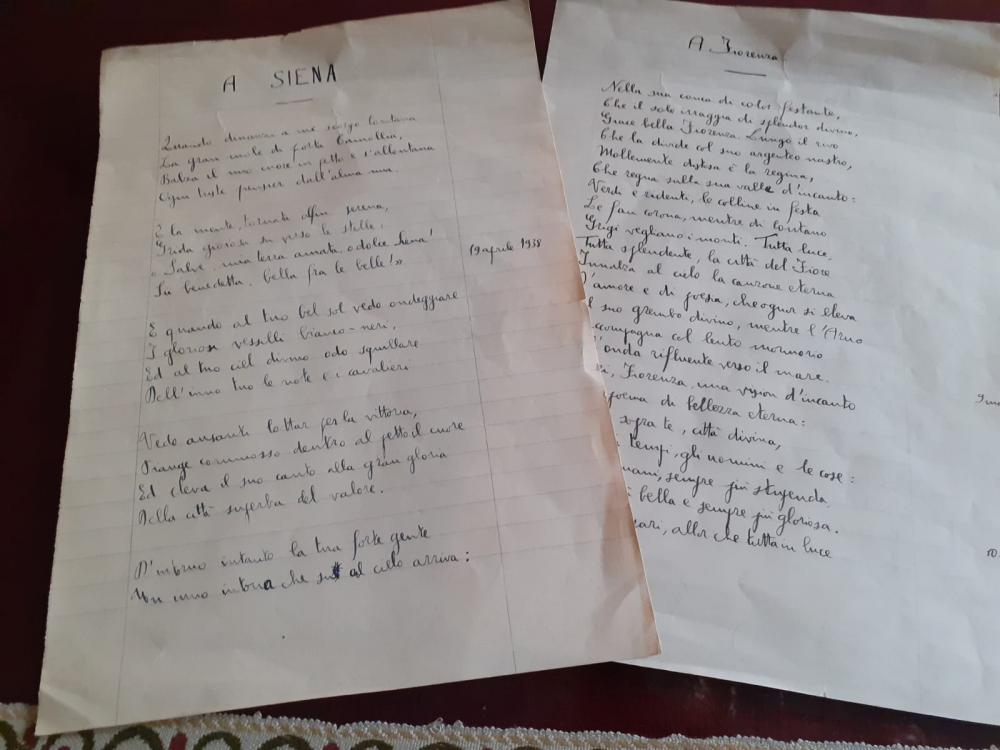 A SIENA
Quando dinanzi a me scorgo lontana
La gran mole di porta Camollia,
Balza il mio cuore in petto e s'allontana
Ogni triste pensier dall'alma mia.
E la mente, tornata alfin serena,
Grida gioiosa su verso le stelle:
"Salve, mia terra amata, o dolce Siena!
Sii benedetta, bella fra le belle!"
19 aprile 1938
E quando al tuo bel sol vedo ondeggiare
I gloriosi vessilli bianco-neri,
Ed al tuo ciel divino odo squillare
Dell'inno tuo le note e i cavalieri
Vedo ansanti lottar per la vittoria,
Piange commosso dentro al petto il cuore
Ed eleva il suo canto alla gran gloria
Della città superba del valore.
D'intorno intanto la tua forte gente
Un inno intona che al cielo arriva:
A Fiorenza
Nella sua conca di color festante,
Che il sole irraggia di splendor divino,
Giace bella Fiorenza. Lungo il rivo
Che la divide col suo argenteo nastro,
Mollemente distesa è la regina,
Che regna sulla sua valle d'incanto:
Verdi e ridenti, le colline in festa
Le fan corona, mentre di lontano
Grigi vegliano i monti. Tutta luce,
Tutta splendente, la città del Fiore
Innalza al cielo la canzone eterna
D'amore e di poesia, che ognor si eleva
suo grembo divino, mentre l'Arno
ccompagna col lento mormorio
l'onda rifluente verso il mare.
Fiorenza, una vision d'incanto
poema di bellezza eterna:
sopra te, città divina,
i tempi, gli uomini e le cose:
mani, sempre più stupenda
bella e sempre più gloriosa.
allor che tutta in luce